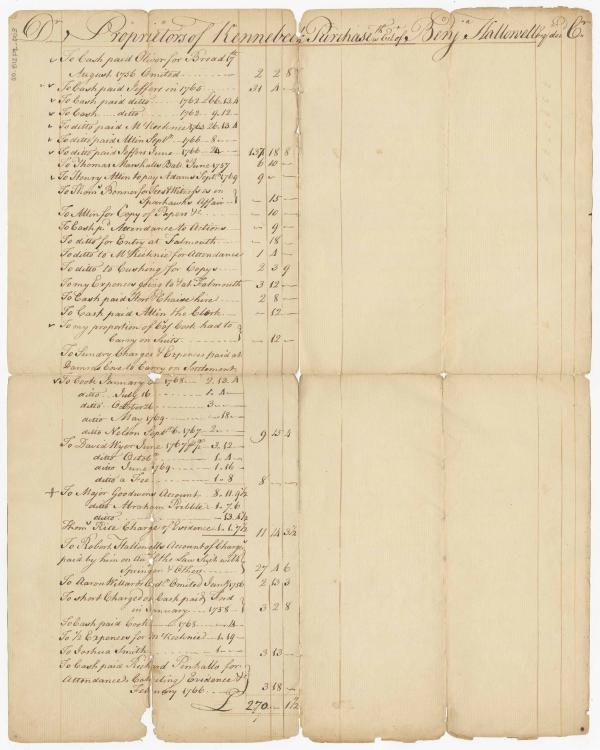 Dr Proprietors of Kennebeck Purchase in Acct of Benja Hallowell Cr
To Cash paid Oliver for Broad 17th
August 1756 Omited 2 2 8
To Cash paid Jeffers in 1765 31 4 -
To Cash paid ditto 1762 66.13.4
To Cash ditto 1762 9.12 -
To ditto paid McKechnie 1763 26.13.4
To ditto paid Allin Septr 1766 8 -
To ditto paid Jeffers June 1766 24 - 137 18 8
To Thomas Marshalls Bala June 1757 6 10 -
To Henry Allin to pay Adams Septr 1769 9 - -
To Thoms Bonner for fees &
Sparhawks Affair - 15 -
To Allin for Copy of Papers &c - 10 -
To Cash pd Attendance to Actions - 9 -
To ditto for Entry at Falmouth - 18 -
To ditto to McKechnie for Attendance 1 4 -
To ditto to Cushing for Copys 2 3 9
To my Expences going to & at Falmouth 3 12 -
To Cash paid Chaise hire 2 8 -
To Cash paid Allin the Clerk - 12 -
To my proportion of Cost had to
Carry on Suits - 12 -
To Sundry Charges & Expences paid at
Damrds Cove to Carry on Settlement
To Cook January 1768 2.13.4
ditto July 16 1.4 -
ditto October 3 -
ditto May 1769 - 18 -
ditto Nelson Septr 6. 1767 2 - 9 15 4
To David Wyer June 1767 3.12 -
ditto Octobr 1.4 -
ditto June 1769 1.16 -
ditto a Fee 1.8 8 - -
To Major Goodwins Account 8.11.9½
ditto Abraham Prebble 1.7.6
ditto - 13.4½
Thoms Rice Charge of Evidence 1.1.7½ 11 14 3½
To Robert Hallowells Account of Charges
paid by him on the Law Suit with
Springer & Others 27 4 6
To Aaron Willards Omited Jany 1756 2 13 3
To short Charged on Cash paid Ford
in January 1758 3 2 8
To Cash paid Cook 1768 - 4 -
To ½ Expences for McKechnie 1.19 -
To Joshua Smith 1 - 3 13 -
To Cash paid Richard Penhallo for
Attendance Evidence &c
February 1766 3 18 -
£ 270 - 1½